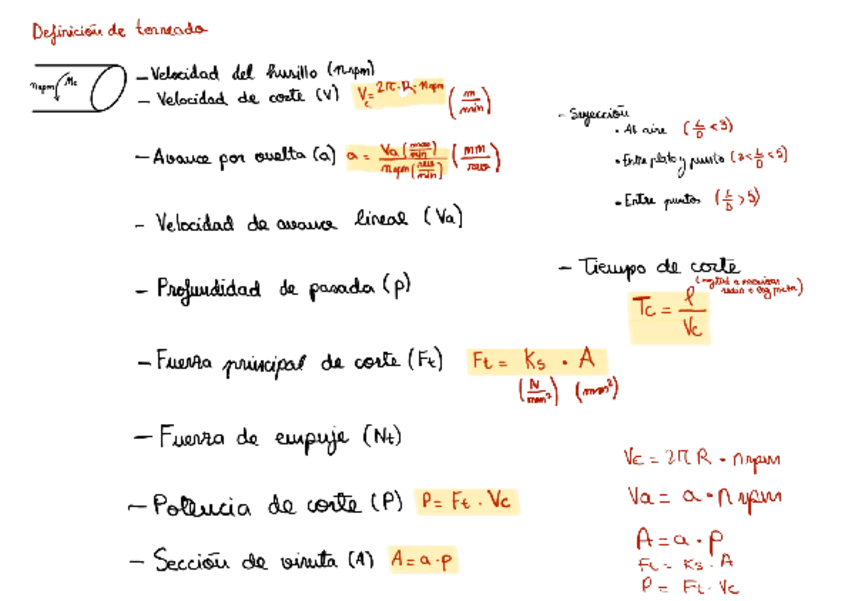 Definición de torneado
nrpm Mc
- Velocidad del husillo (nrpm)
- Velocidad de corte (V) Vc = 2π · R · nrpm (m/min)
- Avance por vuelta (a) a = Va (mm/min) / nrpm (rev/min) (mm/rev)
- Velocidad de avance lineal (Va)
- Profundidad de pasada (p)
- Fuerza principal de corte (Ft) Ft = Ks · A
(N/mm²) (mm²)
- Fuerza de empuje (Nt)
- Potencia de corte (P) P = Ft · Vc
- Sección de viruta (A) A = a · p
- Sujección
· Al aire (L/D < 3)
· Entre plato y punto (3 < L/D < 5)
· Entre puntos (L/D > 5)
- Tiempo de corte
(longitud a mecanizar
Tc = l / Vc
Vc = 2π R · nrpm
Va = a · nrpm
A = a · p
Ft = Ks · A
P = Ft · Vc